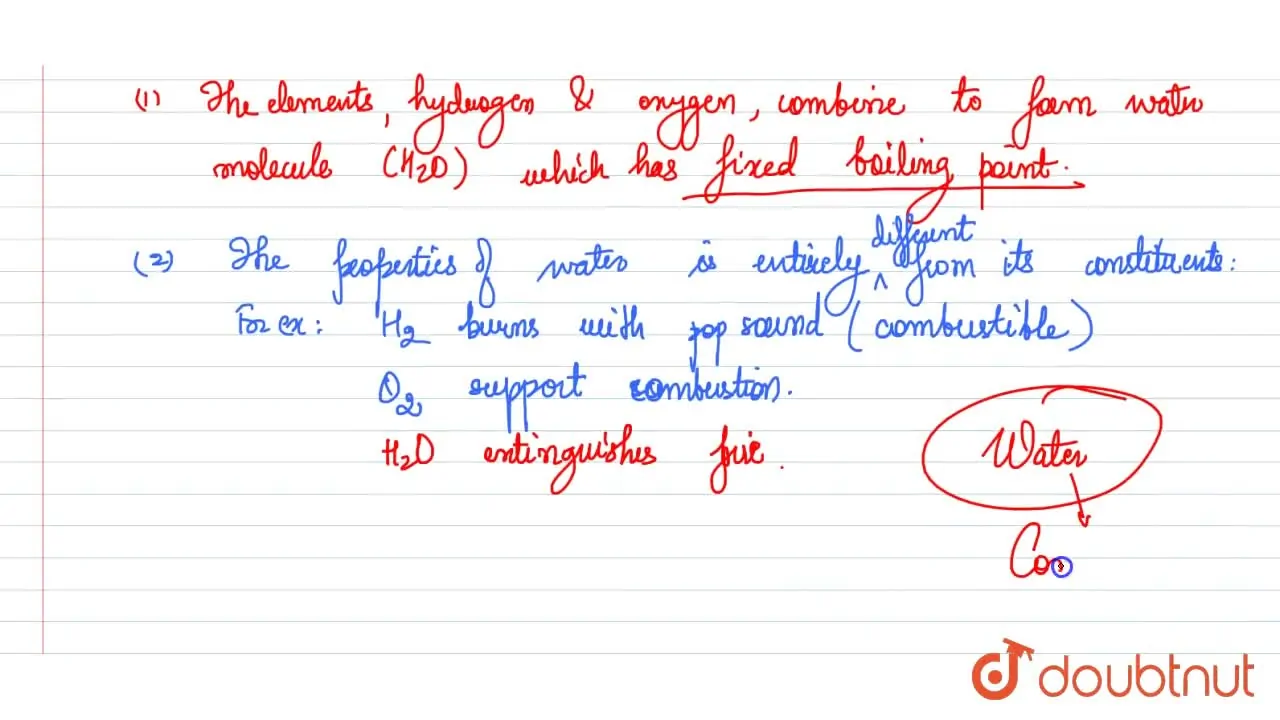 (1) The elements, hydrogen & oxygen, combine to form water
molecule (H2O) which has fixed boiling point.
(2) The properties of water is entirely different from its constituents:
For ex: H2 burns with pop sound (combustible)
O2 support combustion.
H2O extinguishes fire.
Water
Com
doubtnut